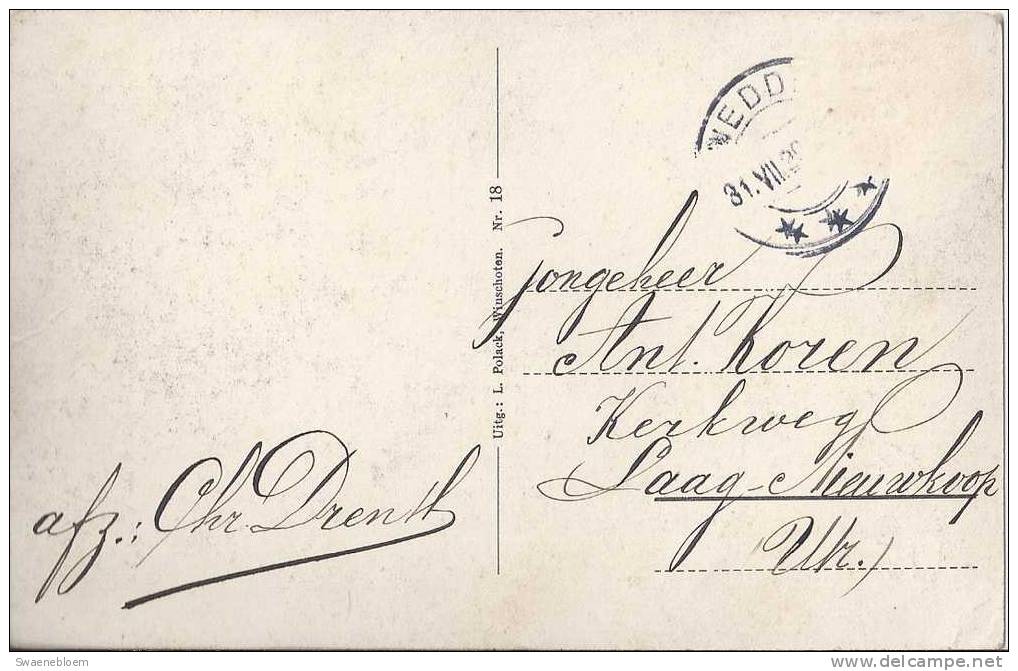 WEDD
31.VII.2
Uitg.: L. Polack, Winschoten. Nr. 18
Jongeheer
Ant. Koren
Kerkweg
Laag-Nieuwkoop
Utr.)
afz.: Chr. Drenth
Swaenebloem
delcampe.net